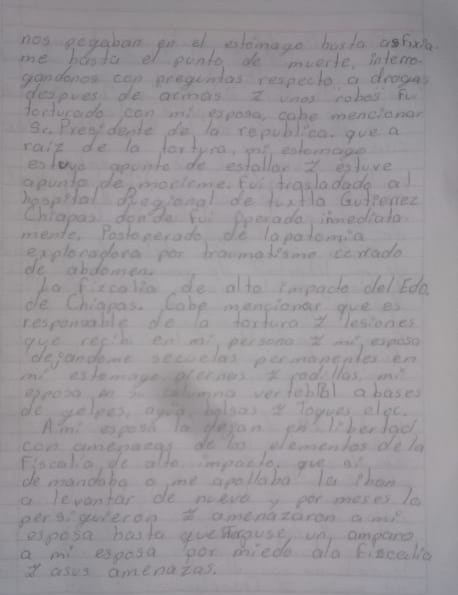 nos pegaban en el estomago hasta asfixia.
me hasta el punto de muerte, interro-
gandonos con preguntas respecto a drogas
despues de armas I unos robos Fui
torturado con mi esposa, cabe mencionar
Sr. Presidente de la republica. que a
raíz de la tortura, mi estomago
estuvo apunto de estallar I estuve
apunto de morirme. Fui trasladado al
hospital regional de tuxtla Gutierrez
Chiapas donde fui operado inmediata
mente. Postoperado de lapatomia
exploradora por traumatisme cerrado
de abdomen.
La fizcalia de alto impacto del Edo.
de Chiapas. Cabe mencionar que es
responsable de la tortura I lesiones
que recibi en mi persona I mi esposa
dejandome secuelas permanentes en
mi estomago piernas I rodillas, mi
esposa en columna vertebral abases
de golpes, agua, bolsas I Toques elec.
Ami esposa la dejan en libertad
con amenazas de los elementos de la
Fiscalía de alto impacto. que si
demandaba o me apollaba la iban
a levantar de nuevo y por meses la
persiguieron I amenazaron a mi
esposa hasta que un amparo
a mi esposa por miedo ala Fiscalia
I asus amenazas.